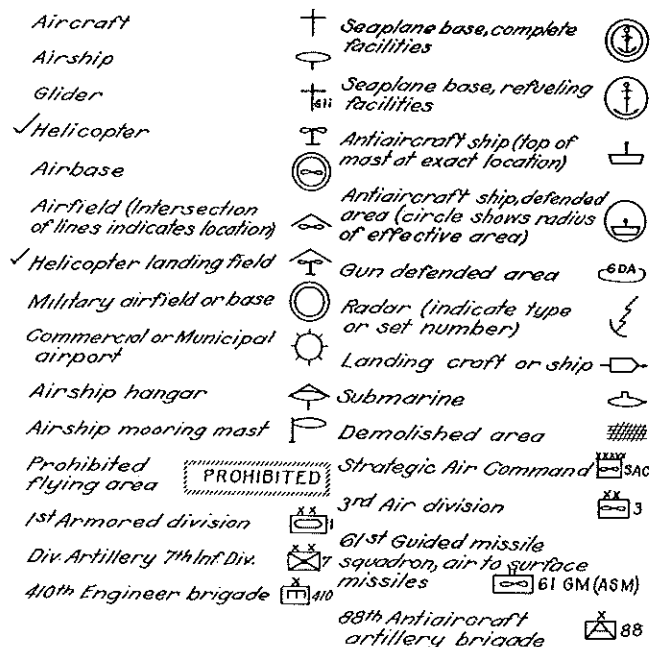 Aircraft
Airship
Glider
Gli
✓Helicopter
Airbase
Airfield (Intersection
of lines indicates location)
✓Helicopter landing field
Military airfield or base
Commercial or Municipal
airport
Airship hangar
Airship mooring mast
Prohibited
flying area
PROHIBITED
1st Armored division
XX
1
Div. Artillery 7th Inf. Div.
XX
7
410th Engineer brigade
X
410
Seaplane base, complete
facilities
Seaplane base, refueling
facilities
Antiaircraft ship (top of
mast at exact location)
Antiaircraft ship, defended
area (circle shows radius
of effective area)
Gun defended area
GDA
Radar (indicate type
or set number)
Landing craft or ship
Submarine
Demolished area
Strategic Air Command
XXXX
SAC
3rd Air division
XX
3
61st Guided missile
squadron, air to surface
missiles
61 GM (ASM)
88th Antiaircraft
artillery brigade
X
88